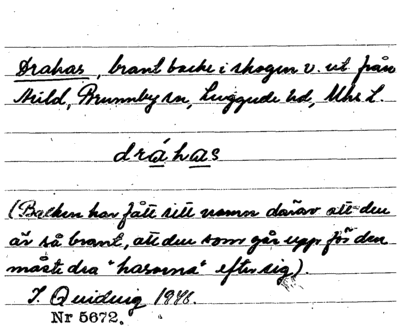 Drahas, brant backe i skogen v. ut från
Arild, Brunnby sn, Luggude hd, Mhs L.
dráhas
(Backen har fått sitt namn därav att den
är så brant, att den som går upp för den
måste dra "hasorna" efter sig).
J. Quidwig 1946.
Nr 5672.